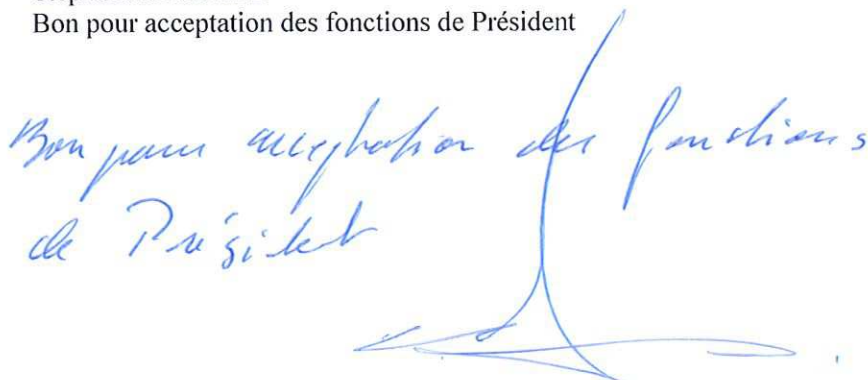 Bon pour acceptation des fonctions de Président
Bon pour acceptation des fonctions
de Président